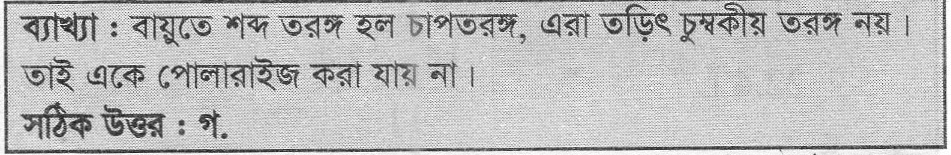 ব্যাখ্যা : বায়ুতে শব্দ তরঙ্গ হল চাপতরঙ্গ, এরা তড়িৎ চুম্বকীয় তরঙ্গ নয়।
তাই একে পোলারাইজ করা যায় না।
সঠিক উত্তর : গ.